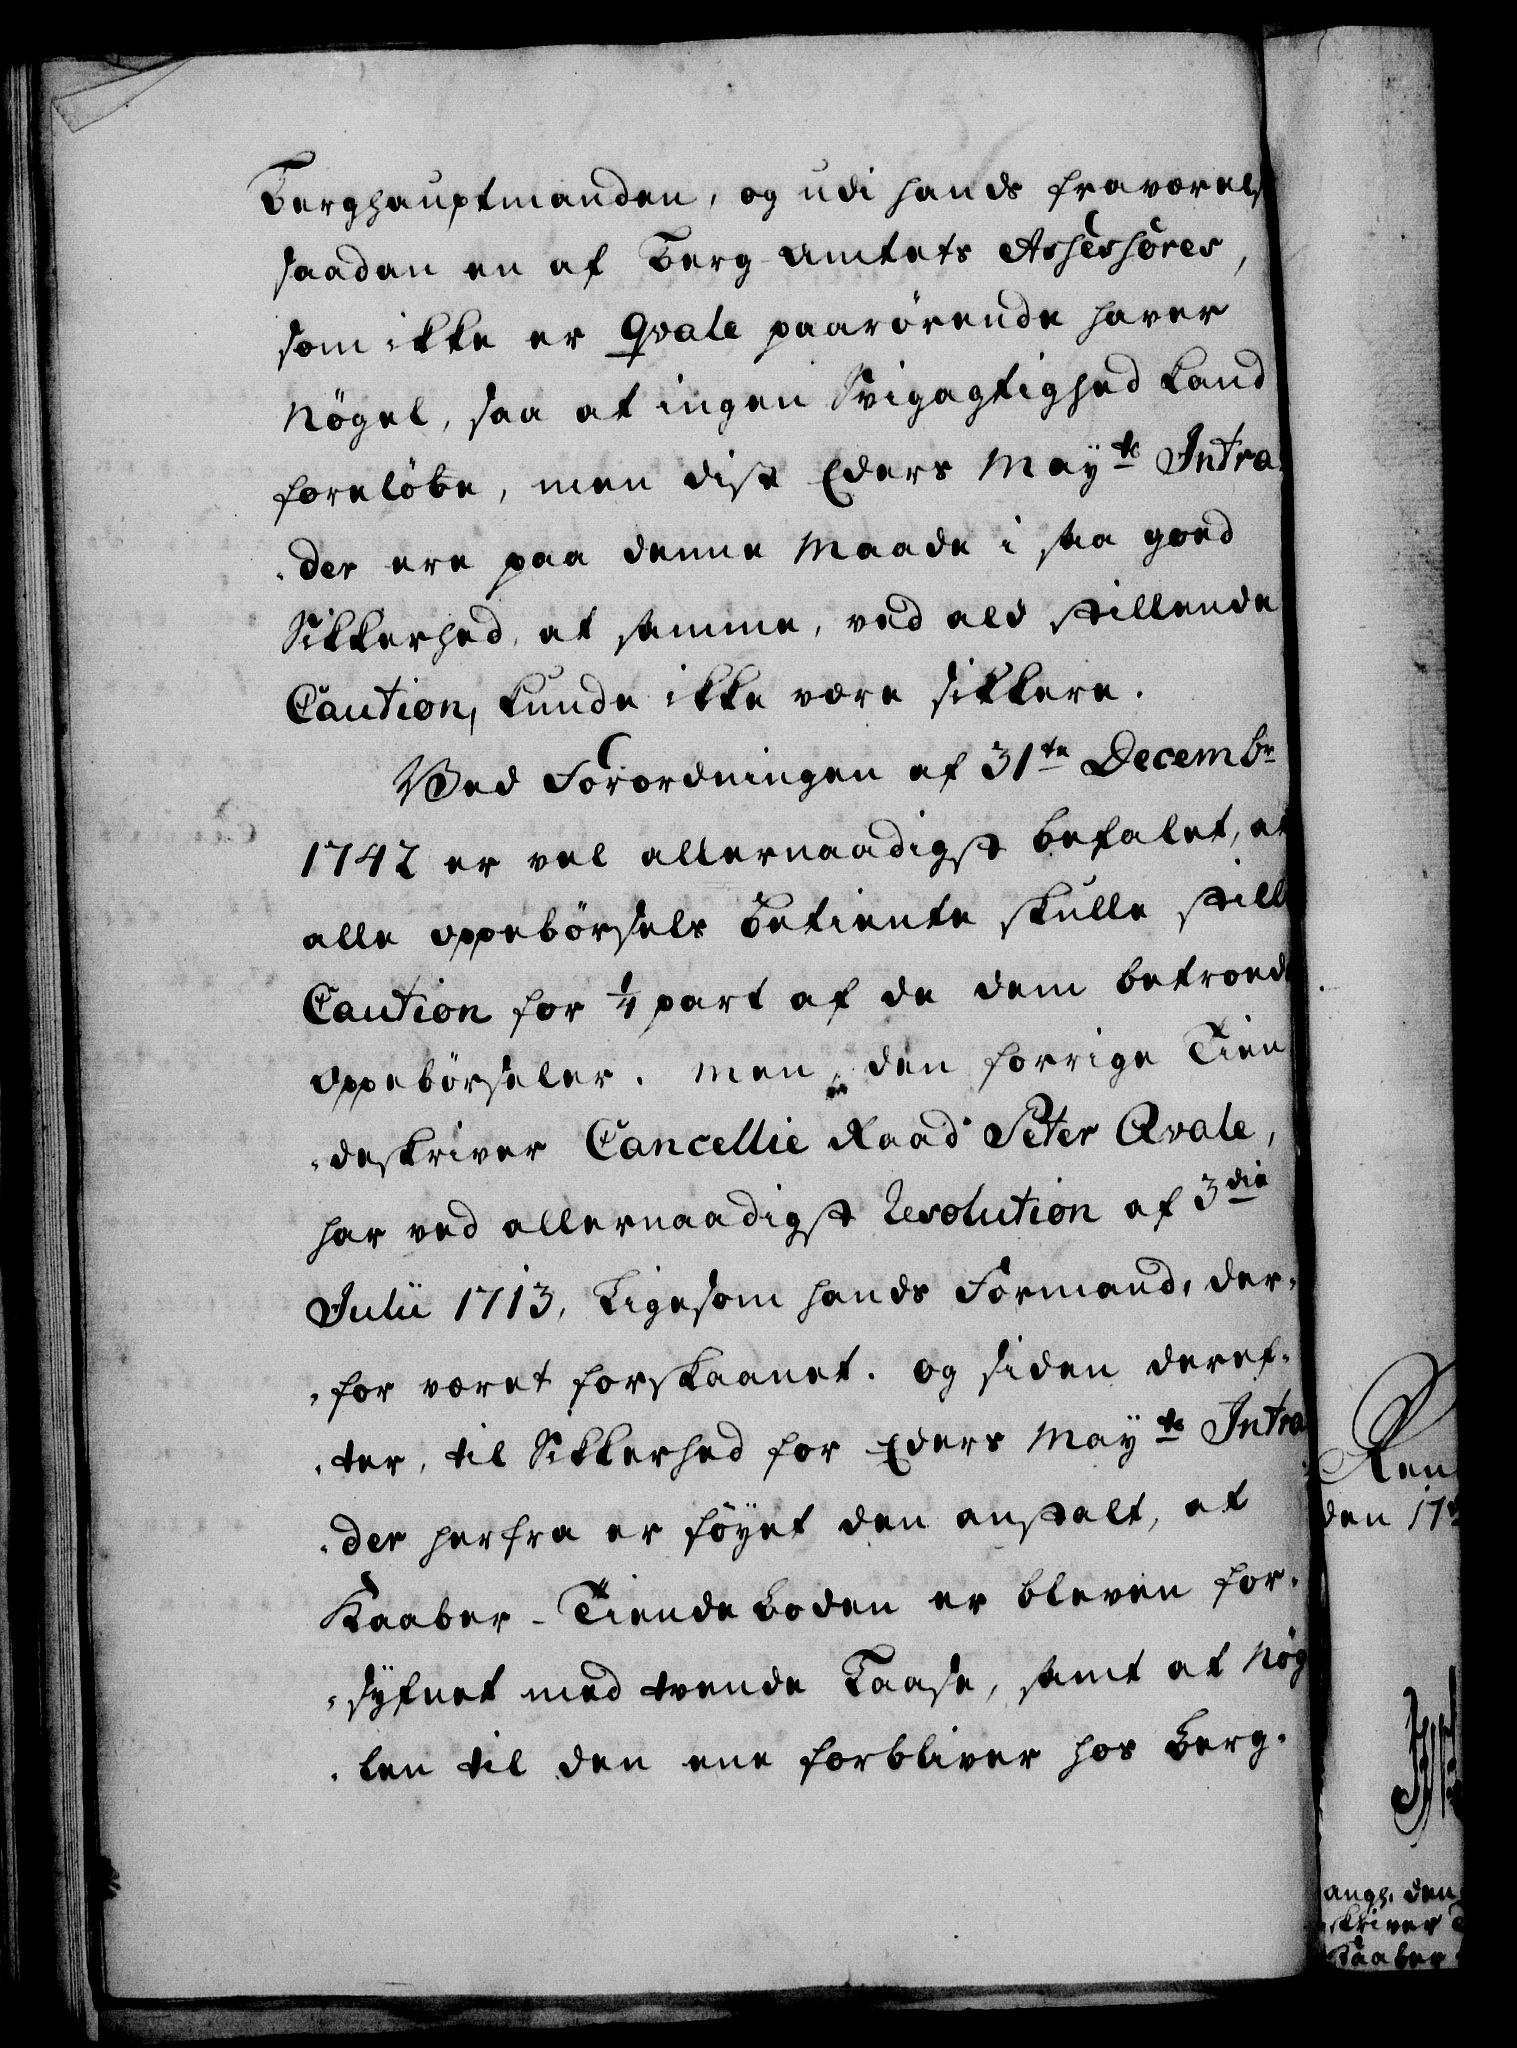 Berghauptmanden, og udi hands fraværels
saadan en af Berg-Amtets Assessorer,
som ikke er Qvale paarørende haver
Nøgel, saa at ingen Svigagtighed kand
foreløbe, men disse Eders Mayts Intra¬
-der ere paa denne Maade i saa goed
Sikkerhed, at samme, ved ald stillende
Caution, kunde ikke være sikkere.
Ved Forordningen af 31te Decembr
1742 er vel allernaadigst befalet, at
alle oppebørsels Betiente skulle still
Caution for ¼ part af de dem betroed
oppebørseler. Men den forrige Tien
-deskriver Cancellie Raad Peter Qvale,
har ved allernaadigst Resolution af 3die
Julii 1713, Ligesom hands Formand, der-
-for været forskaanet. og siden deref-
-ter, til Sikkerhed for Eders Mayts Intra
-der herfra er føyet den anstalt, at
Kaaber-Tiende Boden er bleven for-
-syfnet med tvende Laase, samt at Nøg
-len til den ene forbliver hos Berg-
Ren
den 17
angh. den
skriver
Kaaber